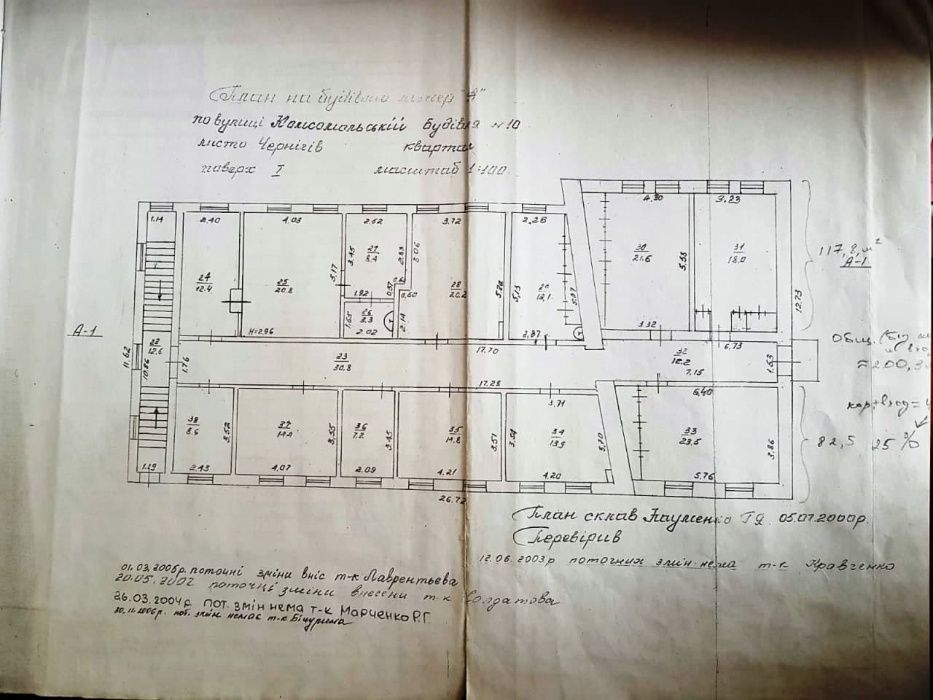 План на будівлю літер "А"
по вулиці Комсомольській Будівля №10
місто Чернігів квартал
поверх I масштаб 1:100
1.14 2.40 4.03 2.62 3.72 2.28 4.30 3.23
24 12.4
25 20.8
5.17
3.45
27 8.4
2.33
3.06
28 20.2
5.26
5.13
12.1
5.27
30 21.6
5.53
31 18.0
12.73
117,8 м²
А-1
1.92
0.57
0.60
1.65
26 3.3
2.02
2.14
H=2.96
2.87
3.32
6.73
А-1
11.62
22 12.6
10.86
1.76
23 30.8
17.70
17.28
32 12.2
7.15
1.63
Общ.
≈200,3
кор+вход=
82,5 25%
38 8.6
3.52
14.4
3.55
36 7.2
3.45
35 14.8
3.51
3.71
34 13.9
3.54
5.70
6.40
33 23.5
3.86
1.19 2.43 4.07 2.09 4.21 4.20 5.76
26.72
План склав Науменко 05.07.2000р.
Перевірив
12.06.2003р поточних змін нема т-к Кравченко
01.03.2005р. поточні зміни вніс т-к Лаврентьєва
20.05.2002 поточні зміни внесени т-к Солдатова
26.03.2004р пот. змін нема т-к Марченко Р.Г.
20.11.2006р. пот. змін немає т-к Бічурина